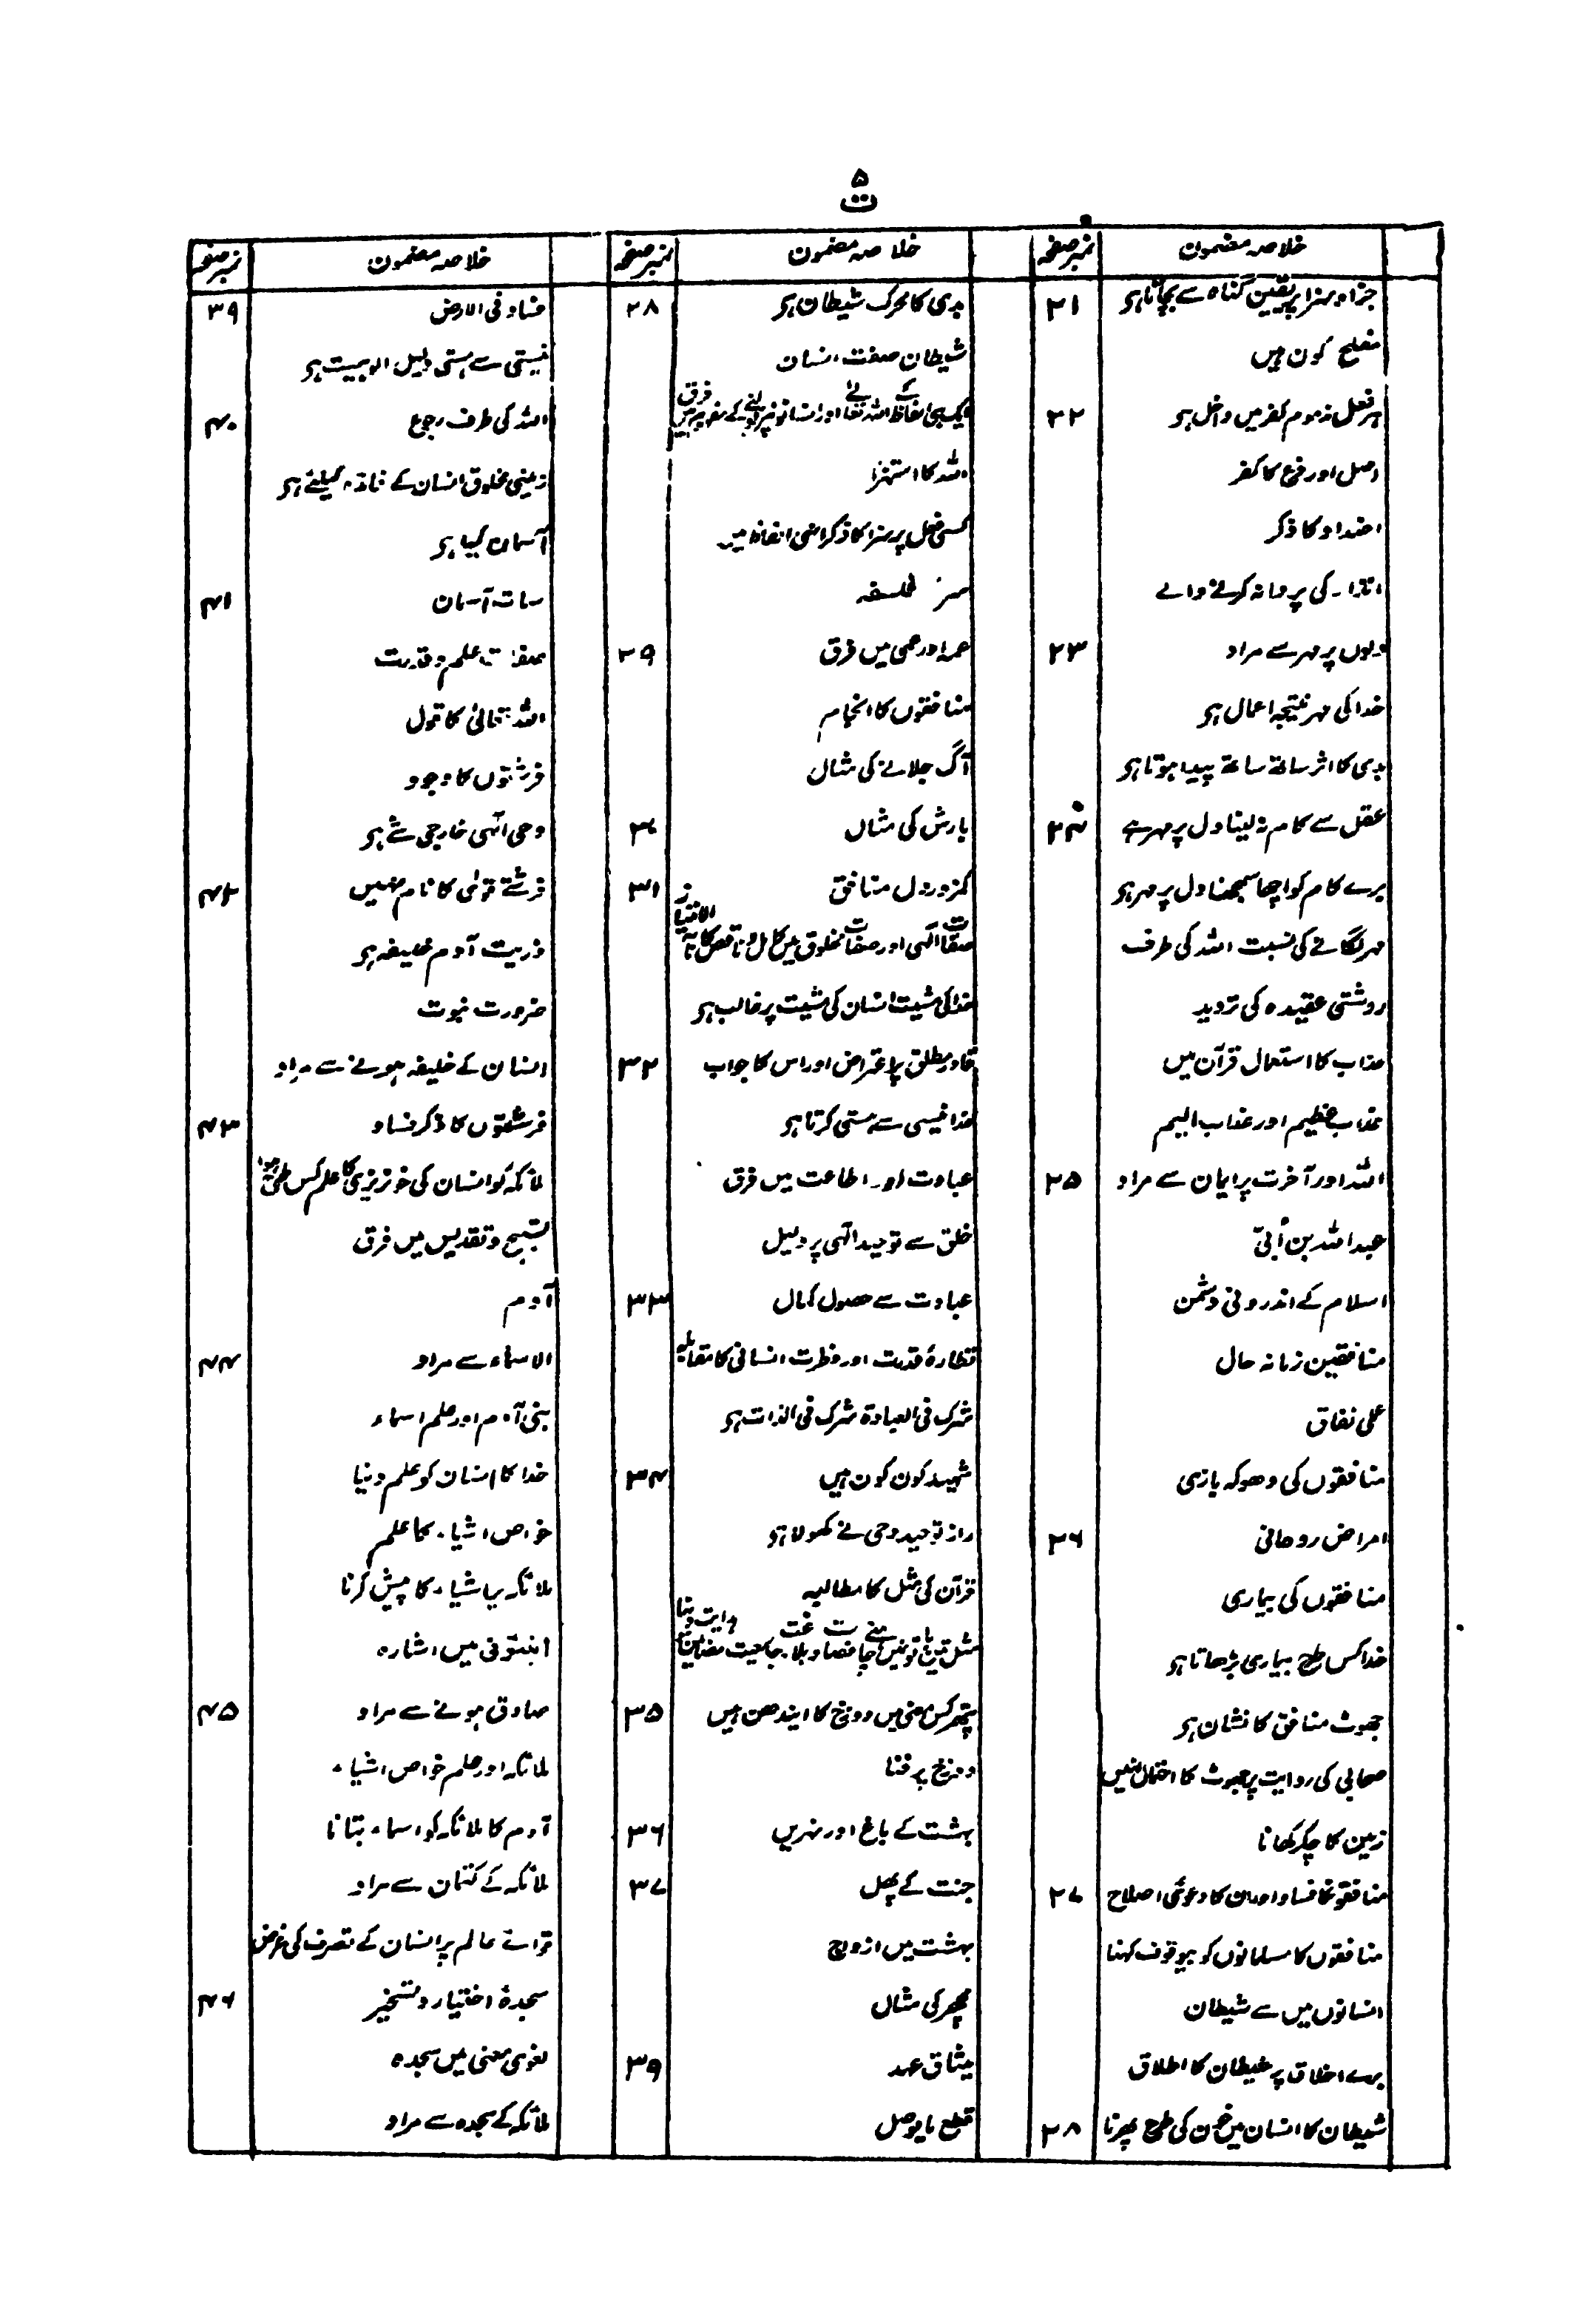 ۵
ت
خلاصہ مضمون نمبر صفحہ
جزا و سزا پر یقین گناہ سے بچاتا ہو ۲۱
مفلح کون ہیں
ہر فعل مذموم کفر میں داخل ہو ۲۲
اصل اور فرع کا کفر
اضداد کا ذکر
انذار کی پروا نہ کرنے والے
دلوں پر مہر سے مراد ۲۳
خدا کی مہر نتیجہ اعمال ہو
بدی کا اثر ساتھ ساتھ پیدا ہوتا ہو
عقل سے کام نہ لینا دل پر مہر ہے ۲۴
برے کام کو اچھا سمجھنا دل پر مہر ہو
مہر لگانے کی نسبت اللہ کی طرف
عقیدہ کی تردید
عذاب کا استعمال قرآن میں
عذاب عظیم اور عذاب الیم
اللہ اور آخرت پر ایمان سے مراد ۲۵
عبداللہ بن اُبیّ
اسلام کے اندرونی دشمن
منافقین زمانہ حال
عملی نفاق
منافقوں کی دھوکہ بازی
امراض روحانی ۲۶
منافقوں کی بیماری
خدا کس طرح بیماری بڑھاتا ہو
جھوٹ منافق کا نشان ہو
صحابی کی روایت پر جھوٹ کا احتمال نہیں
زمین کا چکر کھانا
منافقونکا فساد اور ان کا دعوئ اصلاح ۲۷
منافقوں کا مسلمانوں کو بیوقوف کہنا
انسانوں میں سے شیطان
برے اخلاق پر شیطان کا اطلاق
شیطان کا انسان میں خون کی طرح پھرنا ۲۸
خلاصہ مضمون نمبر صفحہ
بدی کا محرک شیطان ہو ۲۸
شیطان صفت انسان
ایک ہی الفاظ اللہ تعالیٰ اور انسانونپر بولنے کے مفہوم میں فرق
اللہ کا استہزا
کسی فعل پر سزا کا ذکر انہی الفاظ میں
سزا فلسفہ
عمہ اور عمی میں فرق ۲۹
منافقوں کا انجام
آگ جلانے کی مثال
بارش کی مثال ۳۰
کمزور دل منافق ۳۱
صفات الٰہی اور صفات مخلوق میں کامل و ناقص کا مابہ الامتیاز
خدا کی مشیت انسان کی مشیت پر غالب ہو
قادر مطلق پر اعتراض اور اس کا جواب ۳۲
خدا نیستی سے ہستی کرتا ہو
عبادت اور اطاعت میں فرق
خلق سے توحید الٰہی پر دلیل
عبادت سے حصول کمال ۳۳
نظارۂ قدرت اور فطرت انسانی کا مقابلہ
شرک فی العبادۃ شرک فی الذات ہو
شہید کون کون ہیں ۳۴
راز توحید وحی نے کھولا ہو
قرآن کی مثل کا مطالبہ
جامعیت مضامین
پتھر کس معنی میں دوزخ کا ایندھن ہیں ۳۵
دوزخ پر فنا
بہشت کے باغ اور نہریں ۳۶
جنت کے پھل ۳۷
بہشت میں ازواج
مچھر کی مثال
میثاق عہد ۳۹
قطع یا وصل
خلاصہ مضمون نمبر صفحہ
فساد فی الارض ۳۹
نیستی سے ہستی دلیل الوہیت ہو
اللہ کی طرف رجوع ۴۰
زمینی مخلوق انسان کے فائدہ کیلئے ہو
آسمان کیا ہو
سات آسمان ۴۱
صفات علم و قدرت
اللہ تعالیٰ کا قول
فرشتوں کا وجود
وحی الٰہی خارجی شے ہو
فرشتے قوائے کا نام نہیں ۴۲
ذریت آدم خلیفہ ہو
ضرورت نبوت
انسان کے خلیفہ ہونے سے مراد
فرشتوں کا ذکر فساد ۴۳
ملائکہ کو انسان کی خونریزی کا علم کس طرح ہوا
تسبیح و تقدیس میں فرق
آدم
الاسماء سے مراد ۴۴
بنی آدم اور علم اسماء
خدا کا انسان کو علم دینا
خواص اشیاء کا علم
ملائکہ پر اشیاء کا پیش کرنا
انبئونی میں اشارہ
صادق ہونے سے مراد ۴۵
ملائکہ اور علم خواص اشیاء
آدم کا ملائکہ کو اسماء بتانا
ملائکہ کے کتمان سے مراد
قوائے عالم پر انسان کے تصرف کی غرض
سجدۂ اختیار و تسخیر ۴۶
لغوی معنی میں سجدہ
ملائکہ کے سجدہ سے مراد